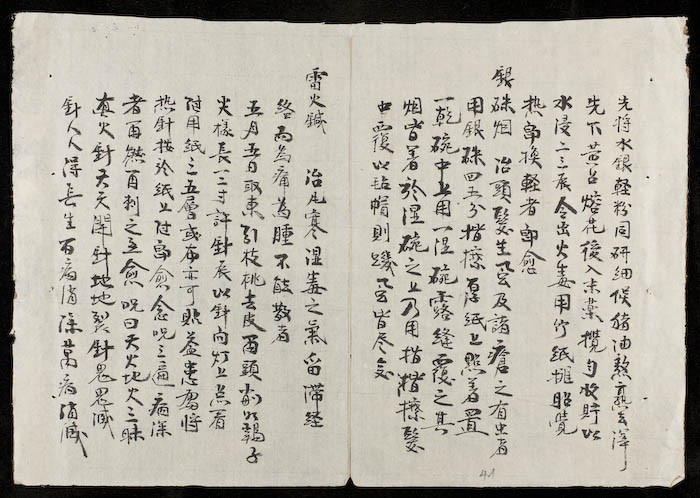 先将水銀軽粉同研細候猪油熬熟去滓
先下黄占熔化後入末薬攪匀收貯以
水浸二三辰令出火毒用竹紙攤貼覚
热即換軽者即愈
銀硃烟 治頭髪生虱及諸瘡之有虫者
用銀硃四五分揩擦厚紙上点着置
一乾碗中上用一湿碗露縫覆之其
烟皆着於湿碗之上乃用指揩擦髪
中覆以毡帽則蟣虱皆尽矣
雷火鍼 治凡寒湿毒之氣留滞経
絡而為痛為腫不能散者
五月五日取東引枝桃去皮両頭削如鷄子
尖様長一二寸許針展以針向灯上点着
付用紙三五層或布亦可貼盖患處将
热針按於紙上付即愈念呪三遍病深
者再燃再刺之立愈呪曰天火地火三昧
真火針天天開針地地裂針鬼鬼滅
針人人得長生百病消除萬病消滅
41